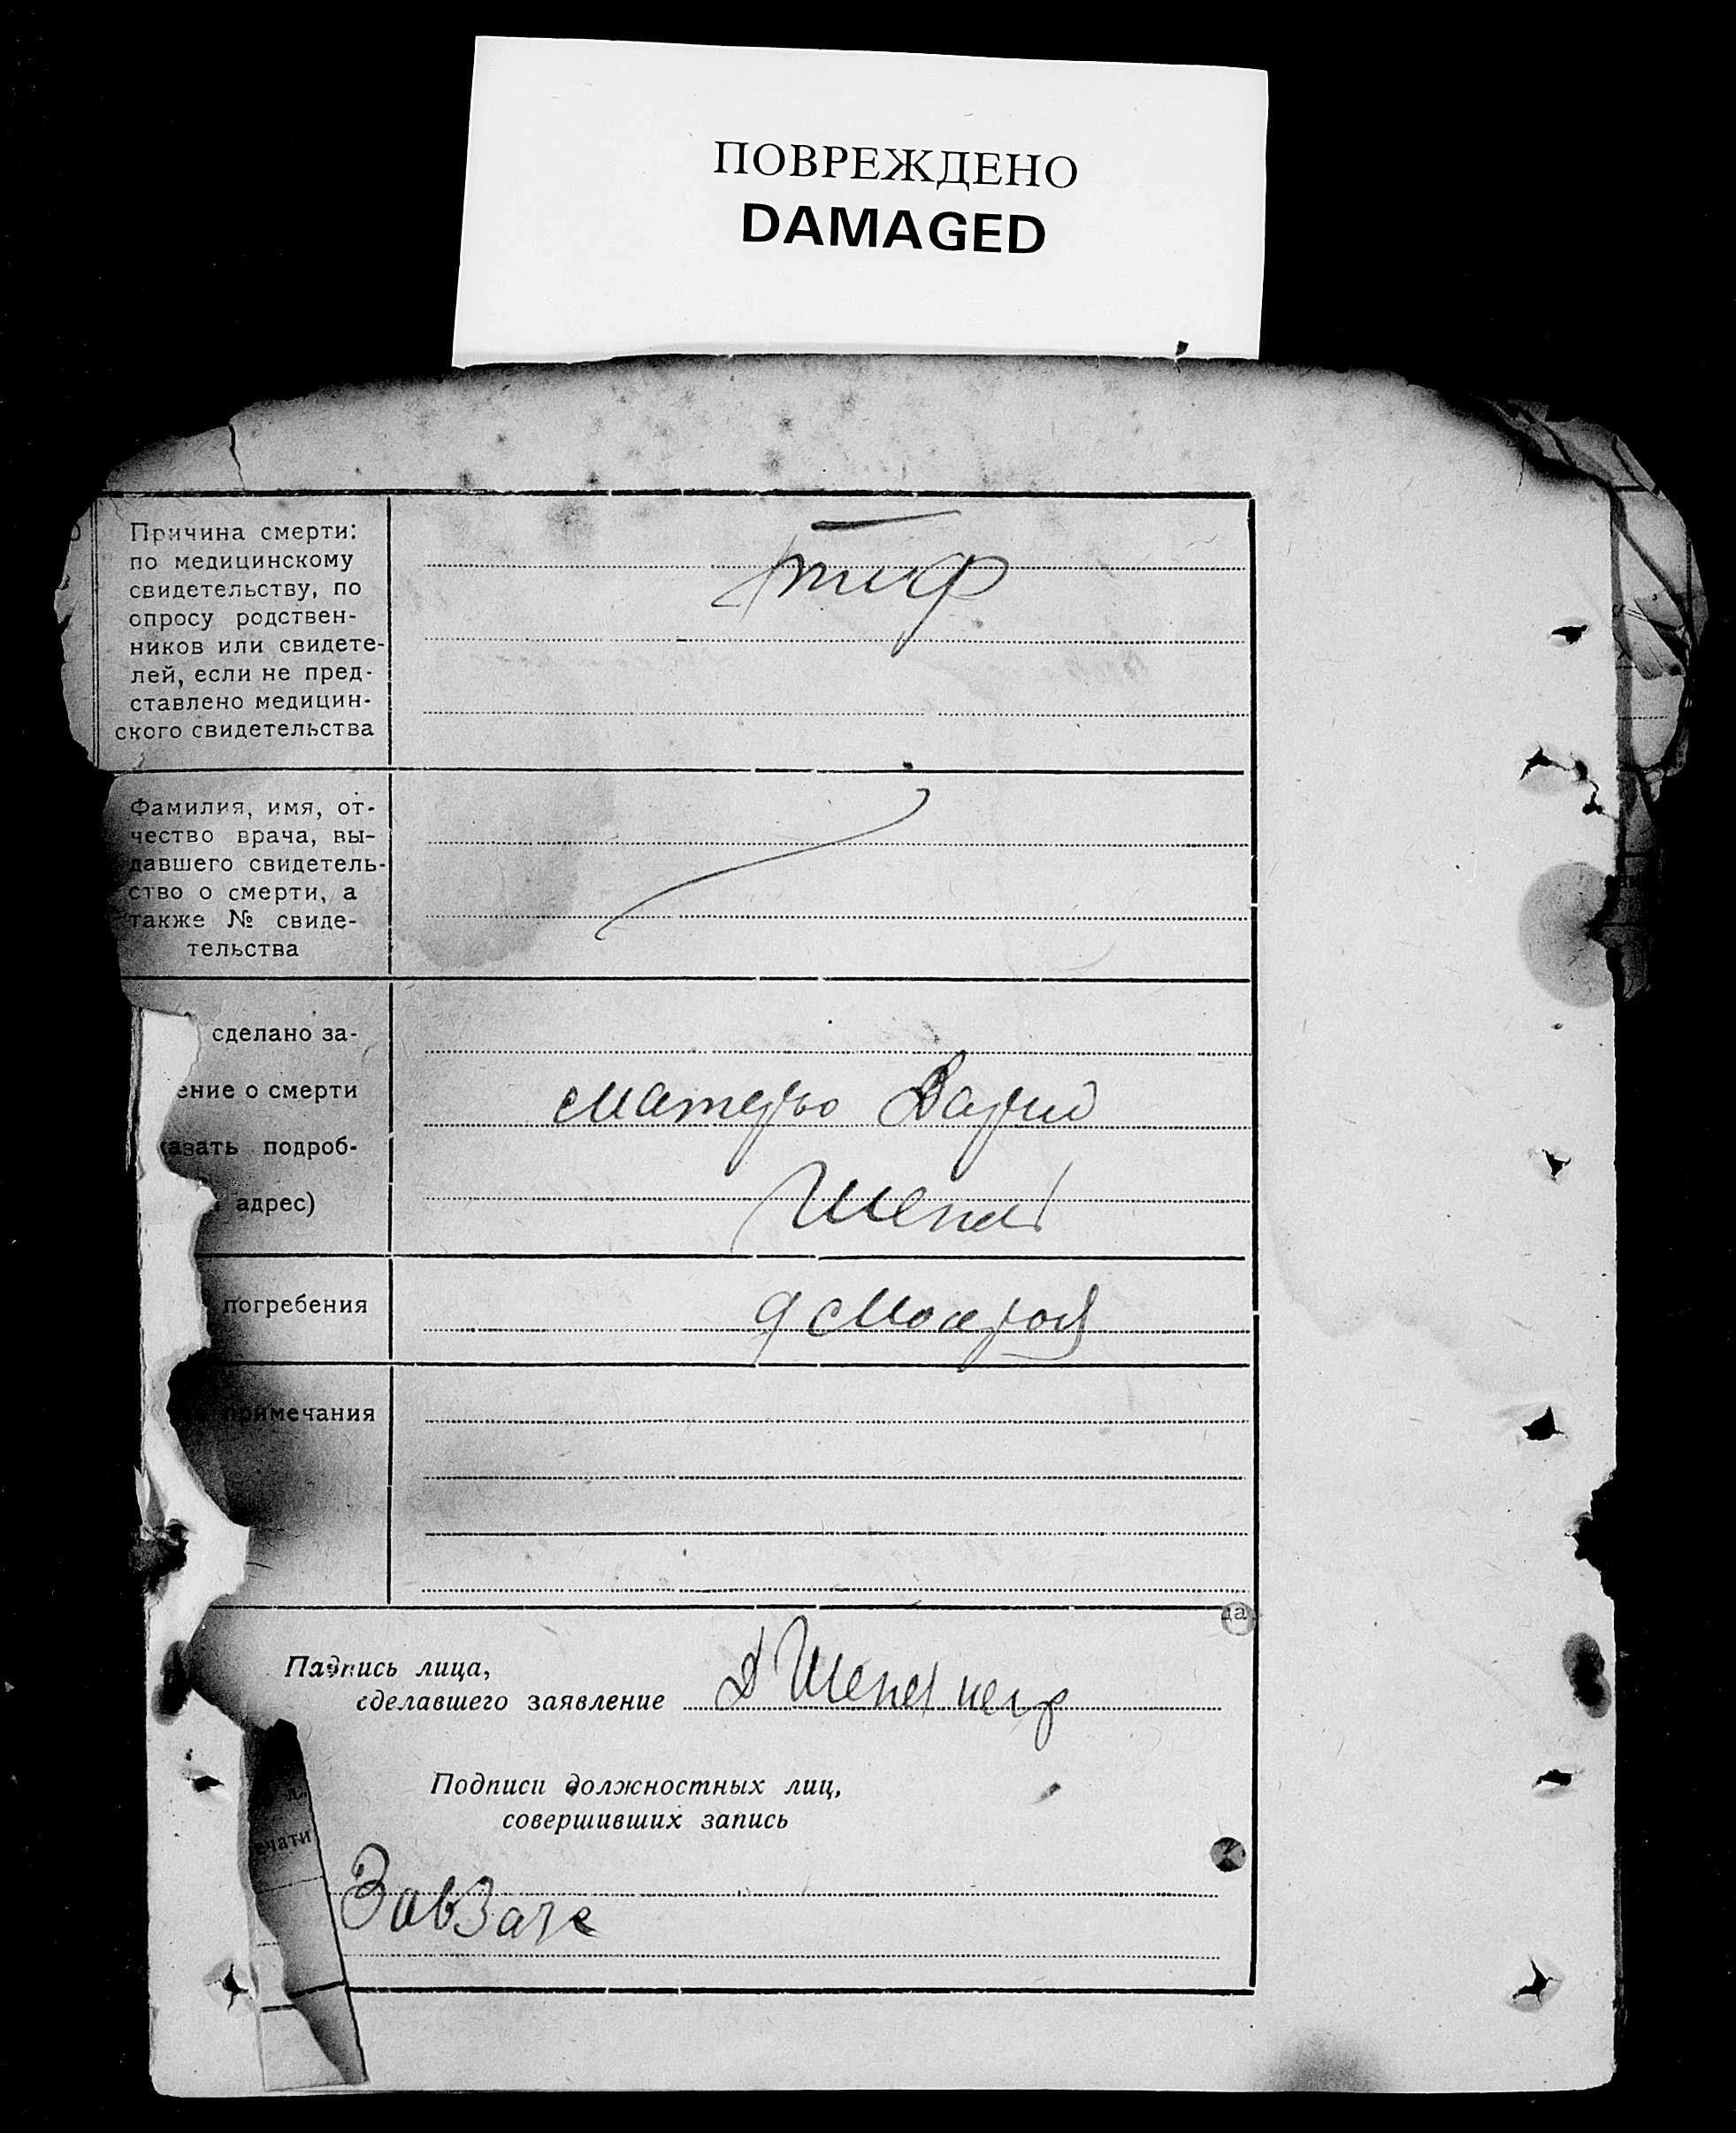 ПОВРЕЖДЕНО
DAMAGED
Причина смерти:
по медицинскому
свидетельству, по
опросу родствен-
ников или свидете-
лей, если не пред-
ставлено медицин-
ского свидетельства
тиф
Фамилия, имя, от-
чество врача, вы-
давшего свидетель-
ство о смерти, а
также № свиде-
тельства
сделано за-
ение о смерти
азать подроб-
адрес)
матерью
погребения
примечания
да
Падпись лица,
сделавшего заявление
Подписи должностных лиц,
совершивших запись
ечати
ЗавЗаге